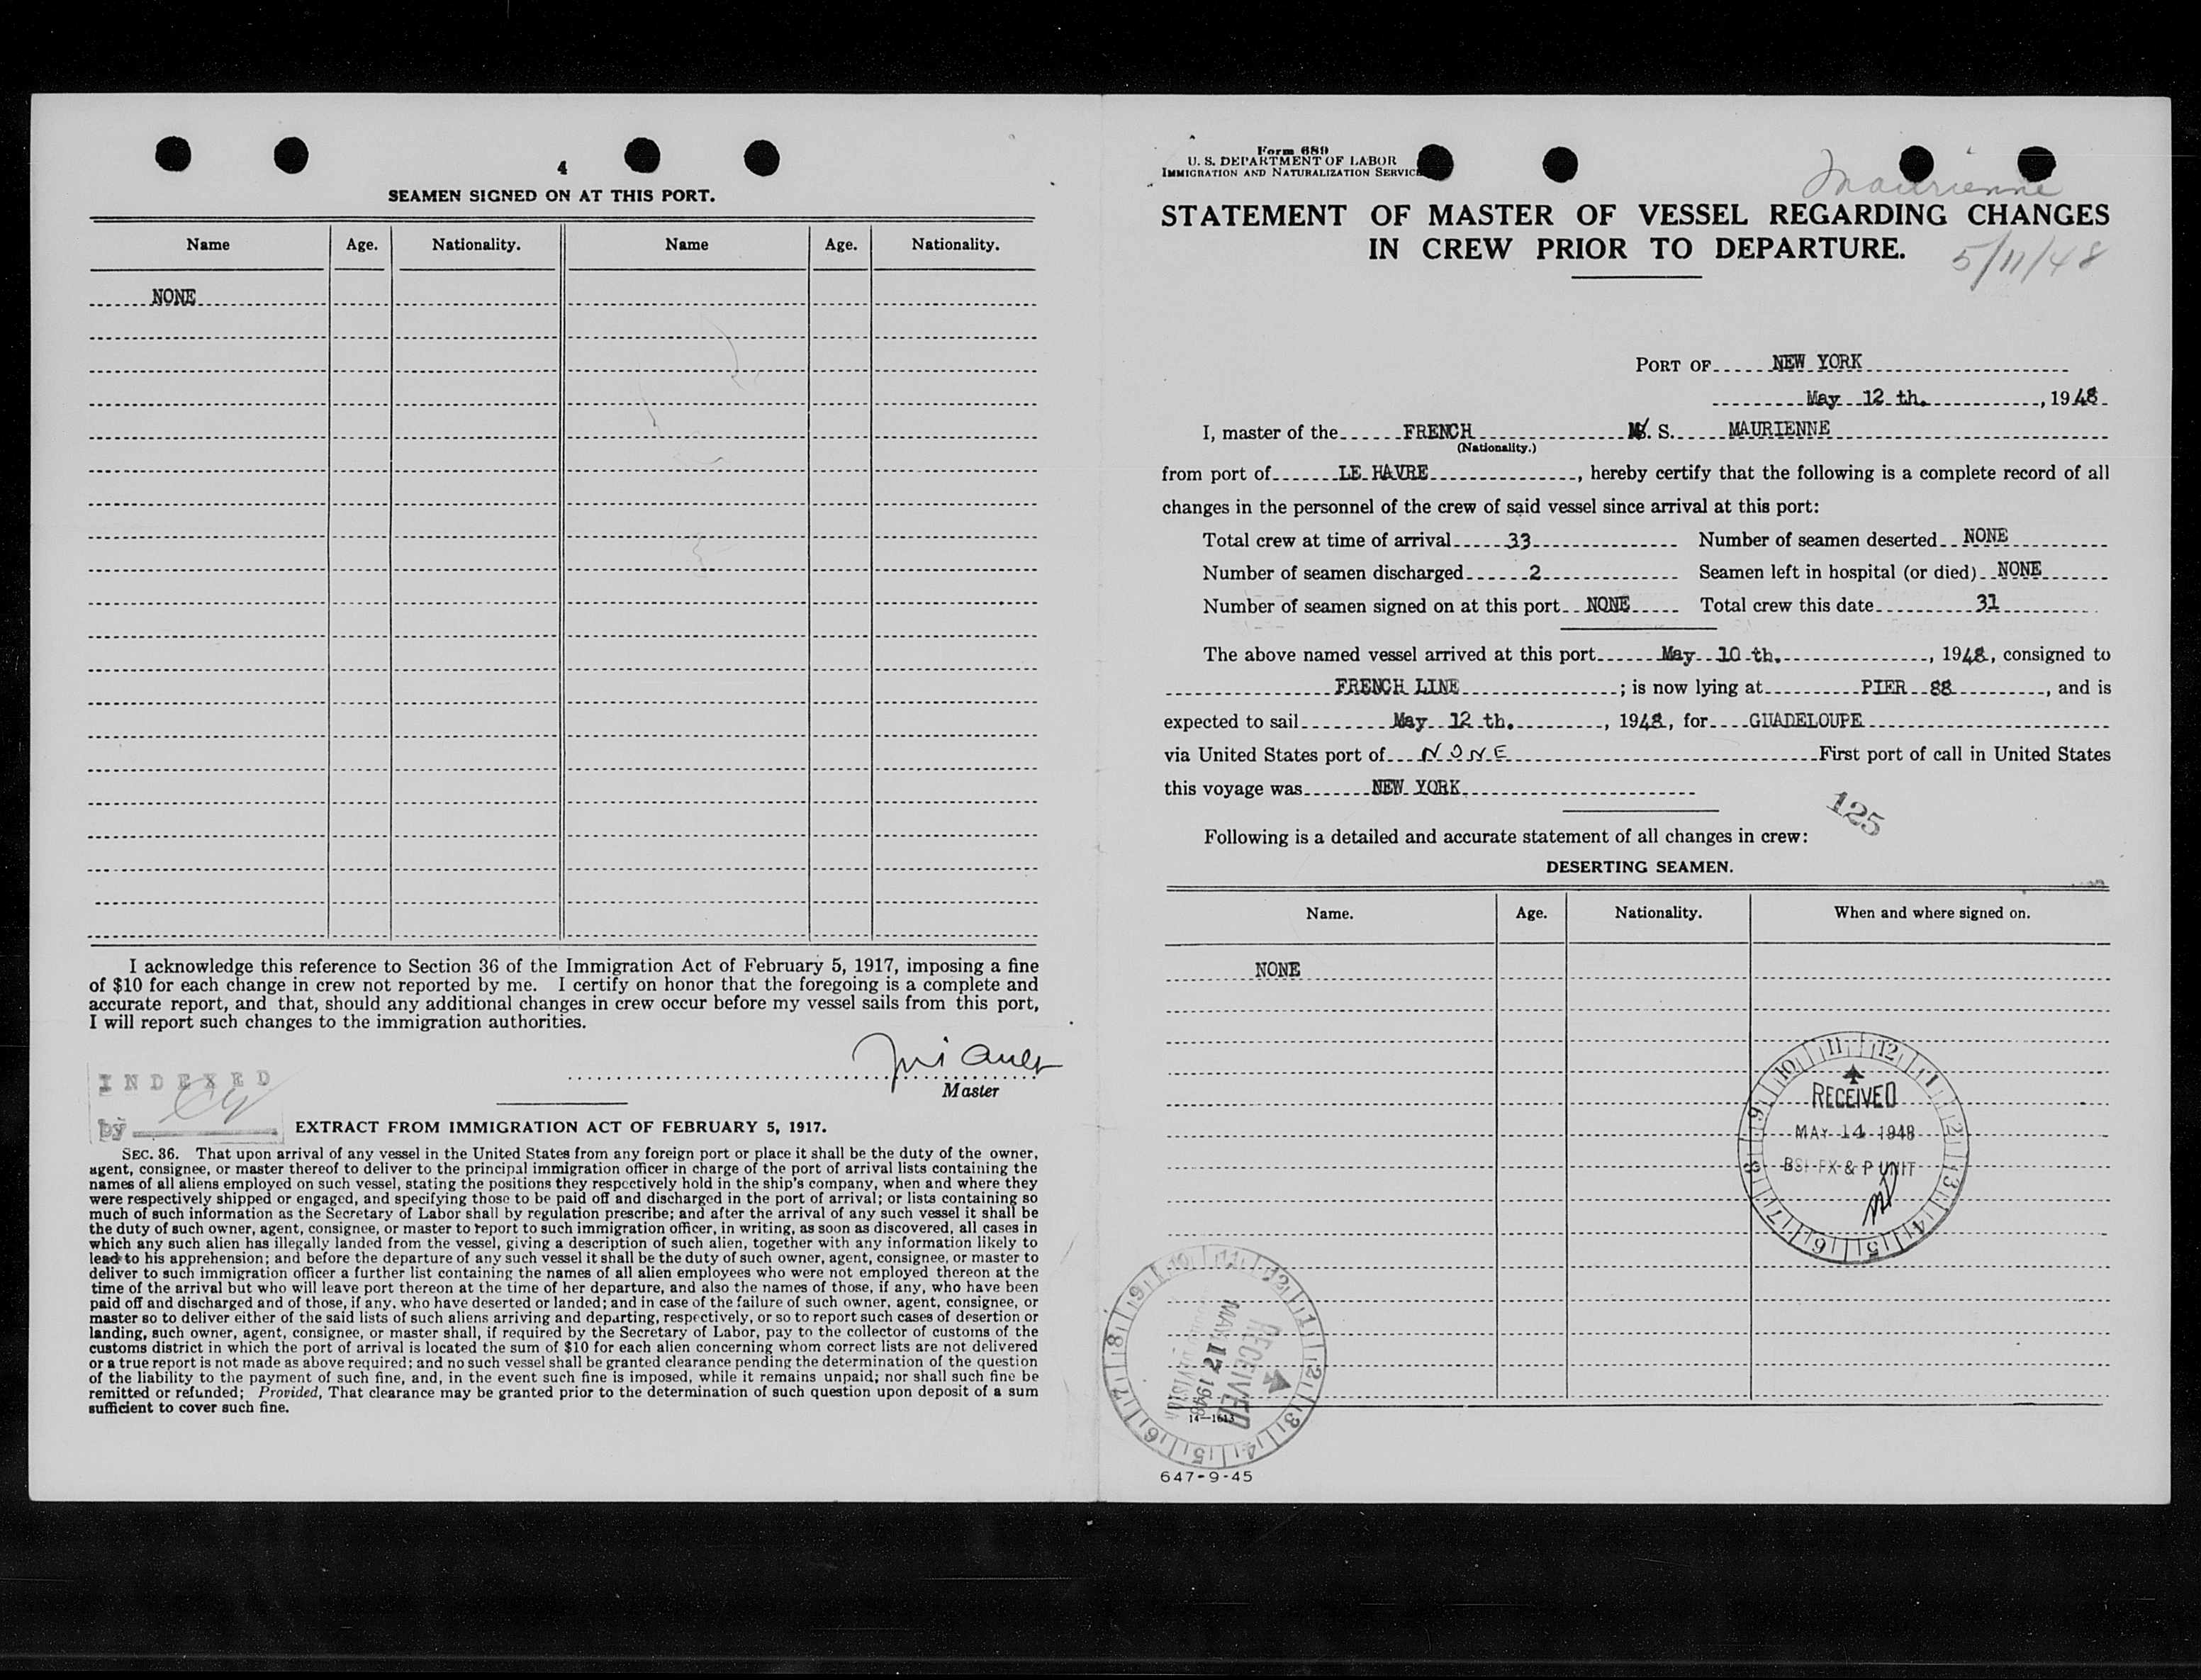 4
SEAMEN SIGNED ON AT THIS PORT.
Name Age. Nationality. Name Age. Nationality.
NONE
I acknowledge this reference to Section 36 of the Immigration Act of February 5, 1917, imposing a fine
of $10 for each change in crew not reported by me. I certify on honor that the foregoing is a complete and
accurate report, and that, should any additional changes in crew occur before my vessel sails from this port,
I will report such changes to the immigration authorities.
Master
INDEXED
by
EXTRACT FROM IMMIGRATION ACT OF FEBRUARY 5, 1917.
SEC. 36. That upon arrival of any vessel in the United States from any foreign port or place it shall be the duty of the owner,
agent, consignee, or master thereof to deliver to the principal immigration officer in charge of the port of arrival lists containing the
names of all aliens employed on such vessel, stating the positions they respectively hold in the ship's company, when and where they
were respectively shipped or engaged, and specifying those to be paid off and discharged in the port of arrival; or lists containing so
much of such information as the Secretary of Labor shall by regulation prescribe; and after the arrival of any such vessel it shall be
the duty of such owner, agent, consignee, or master to report to such immigration officer, in writing, as soon as discovered, all cases in
which any such alien has illegally landed from the vessel, giving a description of such alien, together with any information likely to
lead to his apprehension; and before the departure of any such vessel it shall be the duty of such owner, agent, consignee, or master to
deliver to such immigration officer a further list containing the names of all alien employees who were not employed thereon at the
time of the arrival but who will leave port thereon at the time of her departure, and also the names of those, if any, who have been
paid off and discharged and of those, if any, who have deserted or landed; and in case of the failure of such owner, agent, consignee, or
master so to deliver either of the said lists of such aliens arriving and departing, respectively, or so to report such cases of desertion or
landing, such owner, agent, consignee, or master shall, if required by the Secretary of Labor, pay to the collector of customs of the
customs district in which the port of arrival is located the sum of $10 for each alien concerning whom correct lists are not delivered
or a true report is not made as above required; and no such vessel shall be granted clearance pending the determination of the question
of the liability to the payment of such fine, and, in the event such fine is imposed, while it remains unpaid; nor shall such fine be
remitted or refunded; Provided, That clearance may be granted prior to the determination of such question upon deposit of a sum
sufficient to cover such fine.
Form 689
U. S. DEPARTMENT OF LABOR
IMMIGRATION AND NATURALIZATION SERVICE
Maurienne
STATEMENT OF MASTER OF VESSEL REGARDING CHANGES
IN CREW PRIOR TO DEPARTURE.
5/11/48
PORT OF NEW YORK
May 12 th. , 1948
I, master of the FRENCH M. S. MAURIENNE
(Nationality.)
from port of LE HAVRE , hereby certify that the following is a complete record of all
changes in the personnel of the crew of said vessel since arrival at this port:
Total crew at time of arrival 33 Number of seamen deserted NONE
Number of seamen discharged 2 Seamen left in hospital (or died) NONE
Number of seamen signed on at this port NONE Total crew this date 31
The above named vessel arrived at this port May 10 th. , 1948, consigned to
FRENCH LINE ; is now lying at PIER 88 , and is
expected to sail May 12 th. , 1948, for GUADELOUPE
via United States port of NONE First port of call in United States
this voyage was NEW YORK
125
Following is a detailed and accurate statement of all changes in crew:
DESERTING SEAMEN.
Name. Age. Nationality. When and where signed on.
NONE
RECEIVED
MAY 14 1948
BSI-FX & P UNIT
RECEIVED
MAY 12 1948
14—1613
647-9-45